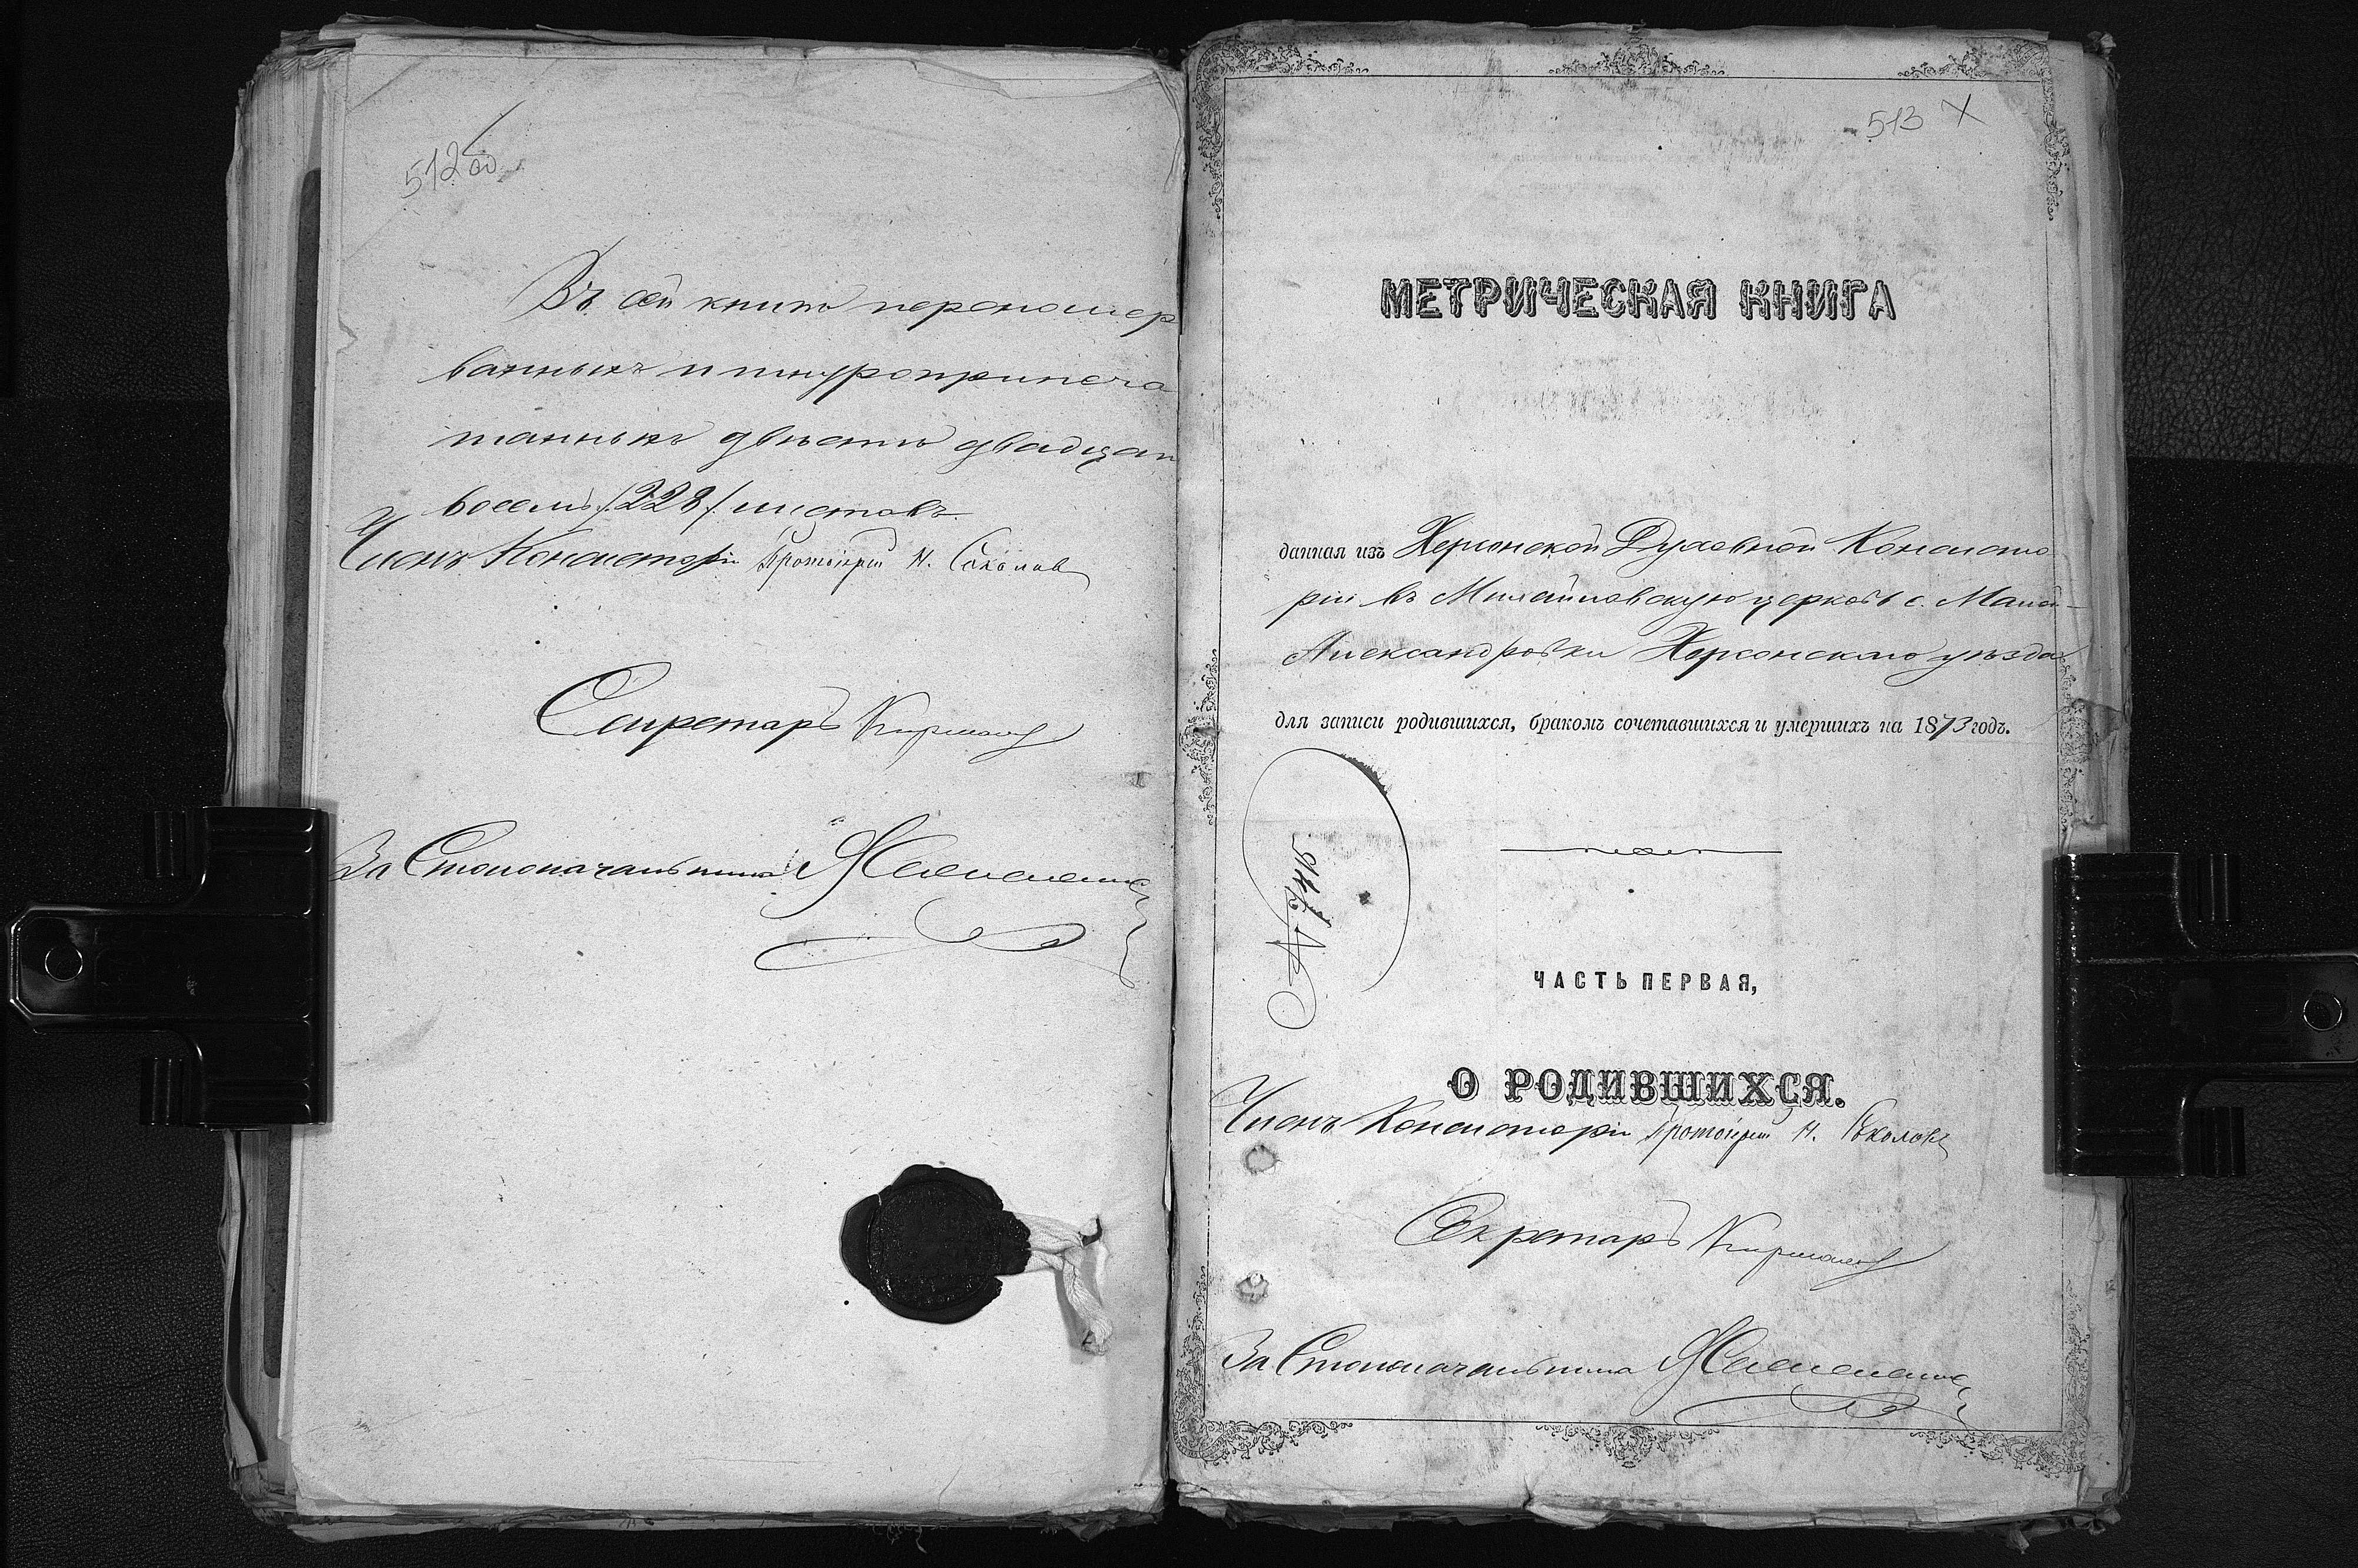 512 об
Въ сей книге перономеро
ванныхъ и шнуроприпеча
танныхъ двѣсти двадцать
восемь /228/ листовъ.
Членъ Консисторіи Протоіерей Н. Соколовъ
Секретарь
За Столоначальника
513
МЕТРИЧЕСКАЯ КНИГА
данная изъ Херсонской Духовной Консисто
ріи въ Михайловскую церковь с. Малой-
Александровки Херсонскаго уѣзда
для записи родившихся, бракомъ сочетавшихся и умершихъ на 1873 годъ.
№ 9447.
ЧАСТЬ ПЕРВАЯ,
О РОДИВШИХСЯ.
Членъ Консисторіи Протоіерей Н. Соколовъ
Секретарь
За Столоначальника